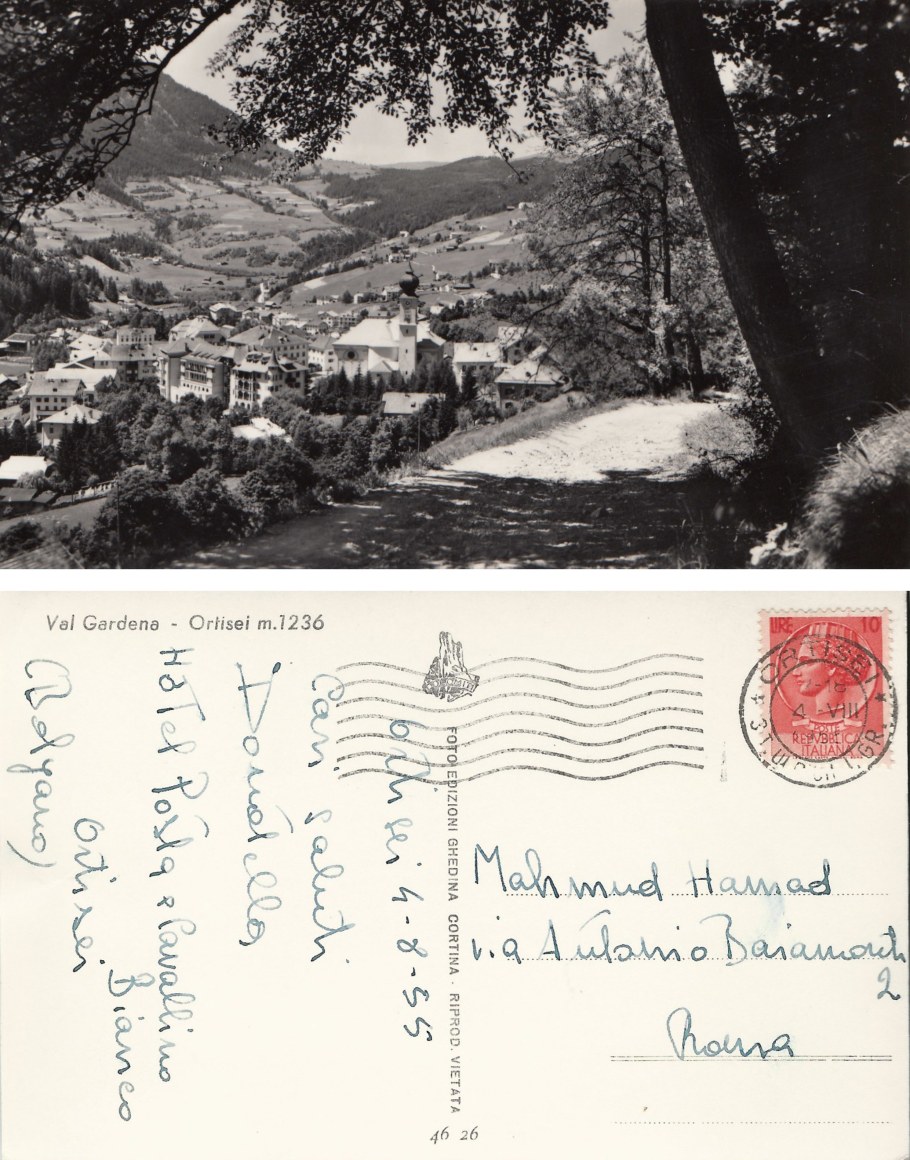 Val Gardena - Ortisei m.1236
LIRE 10
POSTE
REPVBBLICA
ITALIANA
ORTISEI
4 - VIII
Ortisei 4-8-55
Cari saluti
Donatella
Hotel Posta e Cavallino
Bianco
Ortisei
FOTO EDIZIONI GHEDINA CORTINA - RIPROD. VIETATA
Mahmud Hamad
via Antonio Baiamonti
2
Roma
46 26